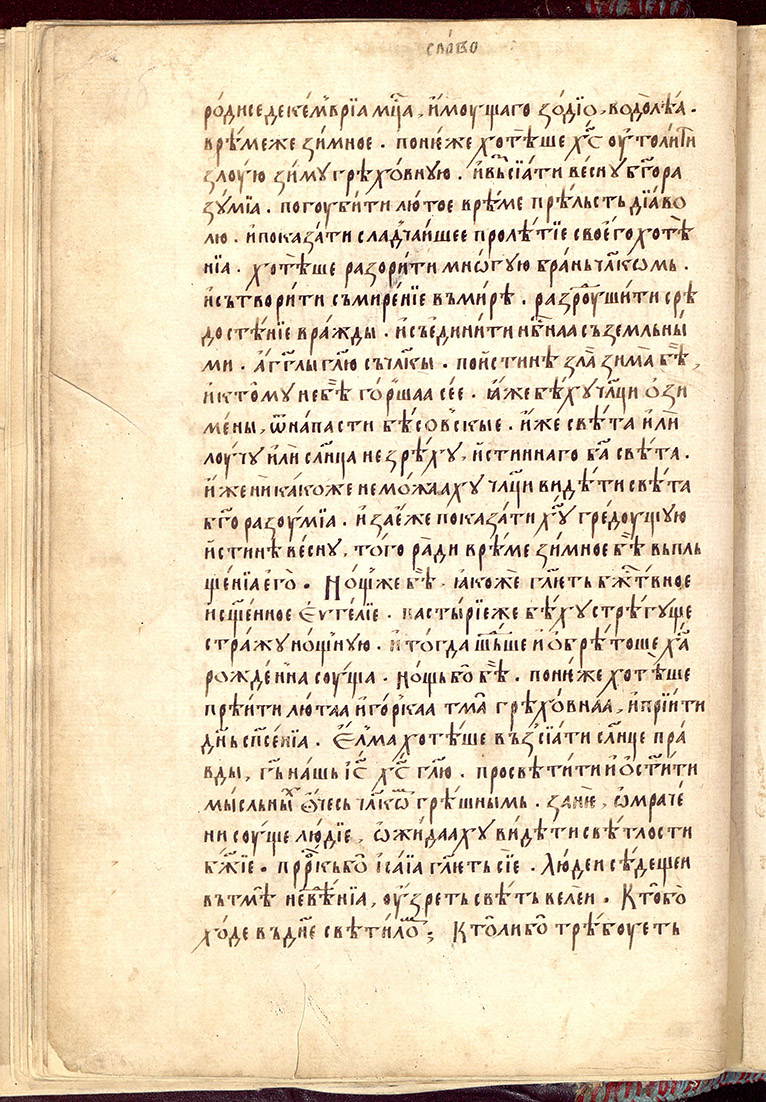 сло́во
ро́дисе декемврїа мц҃а, и҆моущаго зо́дїѡ, водоле́а .
врѣ́меже зи́мное . поне́же хотѣ̀ше х҃с оу҆толи́ти
злоую зи́му грѣхо́вную . и҆въсїа́ти ве́сну б҃гора
зꙋ́мїа . погоуби́ти лю́тое врѣ́ме прѣльсть дїа́во
лю . и҆показа́ти сладча́ишее пролѣ́тїе своего̀ хотѣ̀
нїа . хотѣ̀ше разори́ти мно́гую бра́нь чл҃кѡмь .
и҆сътвори́ти съмире́нїе въми́рѣ . разроу́шити срѣ
досте́нїе вра́жды . и҆съе҆дини́ти нб҃наа съземльны́
ми . а҆гг҃лы гл҃ю съчл҃кы . пои́стинѣ зла̀ зима̀ бѣ̀ ,
и҆кто́му небѣ̀ го́ршаа сее́ . ꙗ҆́же бѣ́ху чл҃ци ѡ҆зи
ме́ны , ѿна́пасти бѣсо́вскые . и҆́же свѣ́та и҆лѝ
лоучу̀ и҆лѝ сл҃нца незрѣ́ху , и҆́стиннаго б҃а свѣ́та .
и҆́же ни́какоже немо́жааху чл҃ци видѣ́ти свѣ́та
б҃горазоу́мїа . и҆зае́же показа́ти х҃ꙋ гре́доущую
и҆́стинѣ ве́сну , то́го ра̀ди врѣ́ме зи́мное бѣ̀ въпль
ще́нїа е҆го̀ . Но́щь же бѣ̀ . ꙗ҆́коже гл҃еть бж҃твное
исщ҃е́нное є҆ѵг҃е́лїе . пасты́рїеже бѣ́ху стрѣ́гуще
стра́жу но́щную . и҆тогда̀ шъ́дше и҆ѡбрѣ́тоше х҃а
рожде́нна соу́ща . но́щь бо̀ бѣ̀ . поне́же хотѣ̀ше
прѣи́ти лю́таа и҆го́ркаа тма̀ грѣхо́внаа , и҆прїи́ти
дн҃ь сп҃се́нїа . Є҆́лма хотѣ̀ше възсїа́ти сл҃нце пра́
вды , г҃ь на́шь і҆с҃ х҃с гл҃ю . просвѣти́ти и҆ѻст҃и́ти
мы́сльныⷯ ѻ҆че́сь чл҃кѡⷨ грѣ́шнымь . зане́ , ѡ҆мраче́
ни соу́ще лю́дїе , ѡ҆жида́аху ви́дѣти свѣ́тлости
б҃жїе . прⷪ҇ркь бо̀ і҆са́їа гл҃еть сїе . лю́деи сѣде́щеи
вътмѣ̀ невѣ́нїа , оу҆́зреть свѣ́ть ве́леи . Кто̀ бо̀
хо́де въдн҃е свѣти́лѡⷨ ; Кто̀ли бо̀ трѣ́боуеть